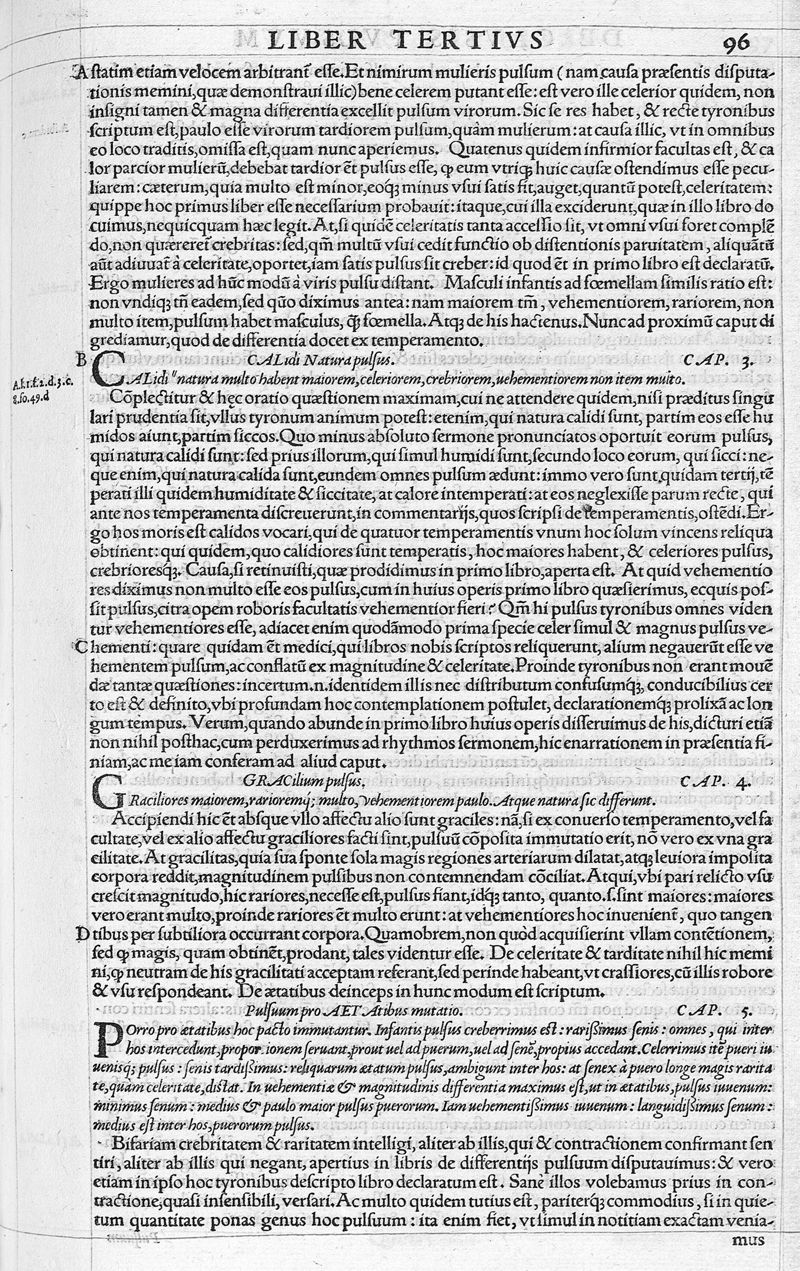 LIBER TERTIVS 96
A statim etiam velocem arbitrant̃ esse. Et nimirum mulieris pulsum (nam causa præsentis disputa-
tionis memini, quæ demonstraui illic) bene celerem putant esse: est vero ille celerior quidem, non
insigni tamen & magna differentia excellit pulsum virorum. Sic se res habet, & recte tyronibus
scriptum est, paulo esse virorum tardiorem pulsum, quàm mulierum: at causa illic, vt in omnibus
eo loco traditis, omissa est, quam nunc aperiemus. Quatenus quidem infirmior facultas est, & ca
lor parcior mulierū, debebat tardior ēt pulsus esse, ꝙ eum vtriqꝫ huic causæ ostendimus esse pecu-
liarem: cæterum, quia multo est minor, eoqꝫ minus vsui satis fit, auget, quantū potest, celeritatem:
quippe hoc primus liber esse necessarium probauit: itaque, cui illa exciderunt, quæ in illo libro do
cuimus, nequicquam hæc legit. At, si quidē celeritatis tanta accessio sit, vt omni vsui foret complē
do, non quæreret̃ crebritas: sed, qm̃ multū vsui cedit functio ob distentionis paruitatem, aliquātū
aūt adiuuat̃ à celeritate, oportet, iam satis pulsus sit creber: id quod ēt in primo libro est declaratū.
Ergo mulieres ad hūc modū à viris pulsu distant. Masculi infantis ad fœmellam similis ratio est:
non vndiqꝫ tñ eadem, sed quo diximus antea: nam maiorem tm̃, vehementiorem, rariorem, non
multo item, pulsum habet masculus, ꝗ̃ fœmella. Atqꝫ de his hactenus. Nunc ad proximū caput di
grediamur, quod de differentia docet ex temperamento.
B CALidi Natura pulsus. CAP. 3.
A.k.r.f.2.d.3.c.
g.fo.49.d
CALidi " natura multo habent maiorem, celeriorem, crebriorem, uehementiorem non item multo.
Cōplectitur & hęc oratio quæstionem maximam, cui ne attendere quidem, nisi præditus singu
lari prudentia sit, vllus tyronum animum potest: etenim, qui natura calidi sunt, partim eos esse hu
midos aiunt, partim siccos. Quo minus absoluto sermone pronunciatos oportuit eorum pulsus,
qui natura calidi sunt: sed prius illorum, qui simul humidi sunt, secundo loco eorum, qui sicci: ne-
que enim, qui natura calida sunt, eundem omnes pulsum ædunt: immo vero sunt, quidam tertij, tē
perati illi quidem humiditate & siccitate, at calore intemperati: at eos neglexisse parum recte, qui
ante nos temperamenta discreuerunt, in commentarijs, quos scripsi de temperamentis, ostēdi. Er-
go hos moris est calidos vocari, qui de quatuor temperamentis vnum hoc solum vincens reliqua
obtinent: qui quidem, quo calidiores sunt temperatis, hoc maiores habent, & celeriores pulsus,
crebrioresqꝫ. Causa, si retinuisti, quæ prodidimus in primo libro, aperta est. At quid vehementio
res diximus non multo esse eos pulsus, cum in huius operis primo libro quæsierimus, ecquis pos-
sit pulsus, citra opem roboris facultatis vehementior fieri? Qm̃ hi pulsus tyronibus omnes viden
tur vehementiores esse, adiacet enim quodāmodo prima specie celer simul & magnus pulsus ve-
C hementi: quare quidam ēt medici, qui libros nobis scriptos reliquerunt, alium negauerūt esse ve
hementem pulsum, ac conflatū ex magnitudine & celeritate. Proinde tyronibus non erant mouē
dæ tantæ quæstiones: incertum .n. identidem illis nec distributum confusumqꝫ, conducibilius cer
to est & definito, vbi profundam hoc contemplationem postulet, declarationemqꝫ prolixā ac lon
gum tempus. Verum, quando abunde in primo libro huius operis disseruimus de his, dicturi etiā
non nihil posthac, cum perduxerimus ad rhythmos sermonem, hic enarrationem in præsentia fi-
niam, ac me iam conferam ad aliud caput.
GRACilium pulsus. CAP. 4.
GRaciliores maiorem, rarioremqꝫ multo, vehementiorem paulo. Atque natura sic differunt.
Accipiendi hic ēt absque vllo affectu alio sunt graciles: nā, si ex conuerso temperamento, vel fa
cultate, vel ex alio affectu graciliores facti sint, pulsuū cōposita immutatio erit, nō vero ex vna gra
cilitate. At gracilitas, quia sua sponte sola magis regiones arteriarum dilatat, atqꝫ leuiora imposita
corpora reddit, magnitudinem pulsibus non contemnendam cōciliat. Atqui, vbi pari relicto vsu
crescit magnitudo, hic rariores, necesse est, pulsus fiant, idqꝫ tanto, quanto .s. sint maiores: maiores
vero erant multo, proinde rariores ēt multo erunt: at vehementiores hoc inuenient̃, quo tangen
D tibus per subtiliora occurrant corpora. Quamobrem, non quòd acquisierint vllam contētionem,
sed ꝙ magis, quam obtinēt, prodant, tales videntur esse. De celeritate & tarditate nihil hic memi
ni, ꝙ neutram de his gracilitati acceptam referant, sed perinde habeant, vt crassiores, cū illis robore
& vsu respondeant. De ætatibus deinceps in hunc modum est scriptum.
Pulsuum pro AETAtibus mutatio. CAP. 5.
POrro pro ætatibus hoc pacto immutantur. Infantis pulsus creberrimus est: rarißimus senis: omnes, qui inter
hos intercedunt, proporionem seruant, prout uel ad puerum, uel ad senē, propius accedant. Celerrimus itē pueri iu
uenisqꝫ pulsus: senis tardißimus: reliquarum ætatum pulsus, ambigunt inter hos: at senex à puero longe magis rarita
te, quam celeritate, distat. In uehementiæ & magnitudinis differentia maximus est, ut in ætatibus, pulsus iuuenum:
minimus senum: medius & paulo maior pulsus puerorum. Iam uehementißimus iuuenum: languidißimus senum:
medius est inter hos, puerorum pulsus.
Bifariam crebritatem & raritatem intelligi, aliter ab illis, qui & contractionem confirmant sen
tiri, aliter ab illis qui negant, apertius in libris de differentijs pulsuum disputauimus: & vero
etiam in ipso hoc tyronibus descripto libro declaratum est. Sanè illos volebamus prius in con-
tractione, quasi insensibili, versari. Ac multo quidem tutius est, pariterqꝫ commodius, si in quie-
tum quantitate ponas genus hoc pulsuum: ita enim fiet, vt simul in notitiam exactam venia-
mus